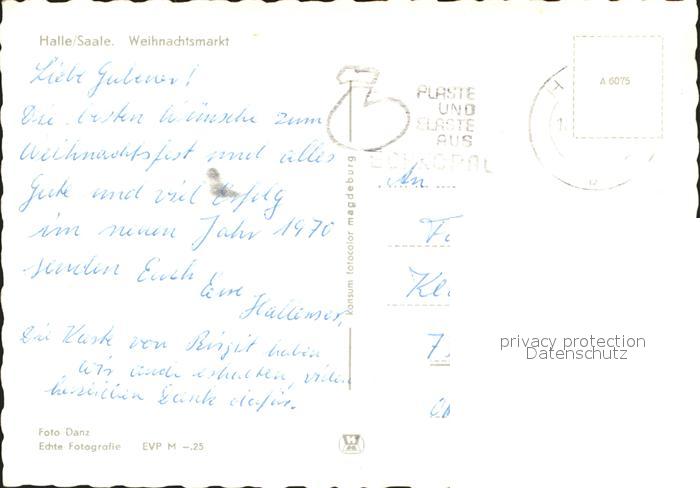 Halle/Saale. Weihnachtsmarkt
Liebe Gubener!
Die besten Wünsche zum
Weihnachtsfest und alles
Gute und viel Erfolg
im neuen Jahr 1970
senden Euch
Eure
Hallenser.
Die Karte von Birgit haben
wir auch erhalten, vielen
herzlichen Dank dafür.
Foto Danz
Echte Fotografie EVP M -.25
konsum fotocolor magdeburg
PLASTE
UND
ELASTE
AUS
SCHKOPAU
A 6075
An
privacy protection
Datenschutz